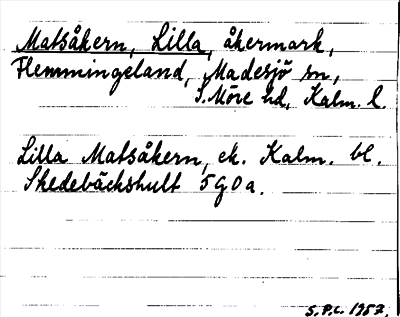 Matsåkern, Lilla, åkermark,
Flemmingeland, Madesjö sn,
S. Möre hd, Kalm. l.
Lilla Matsåkern, ek. Kalm. bl.
Skedebäckshult 5G0a.
S.P.C. 1957.